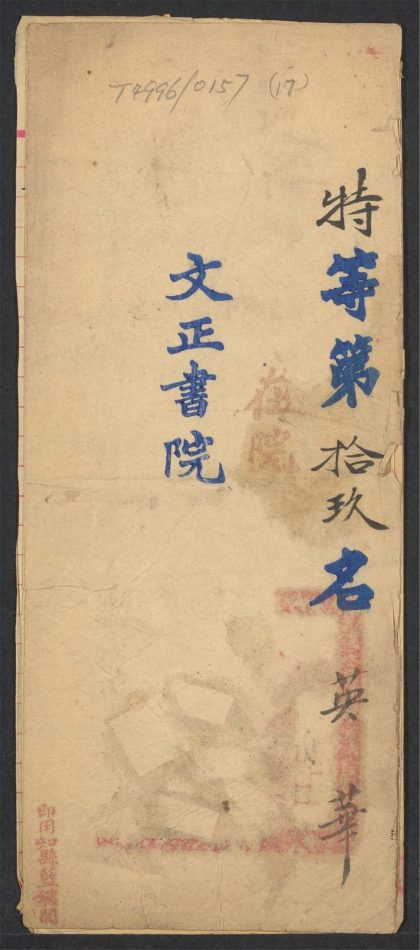 T4996/0157 (17)
特等第拾玖名英華
在院
文正書院